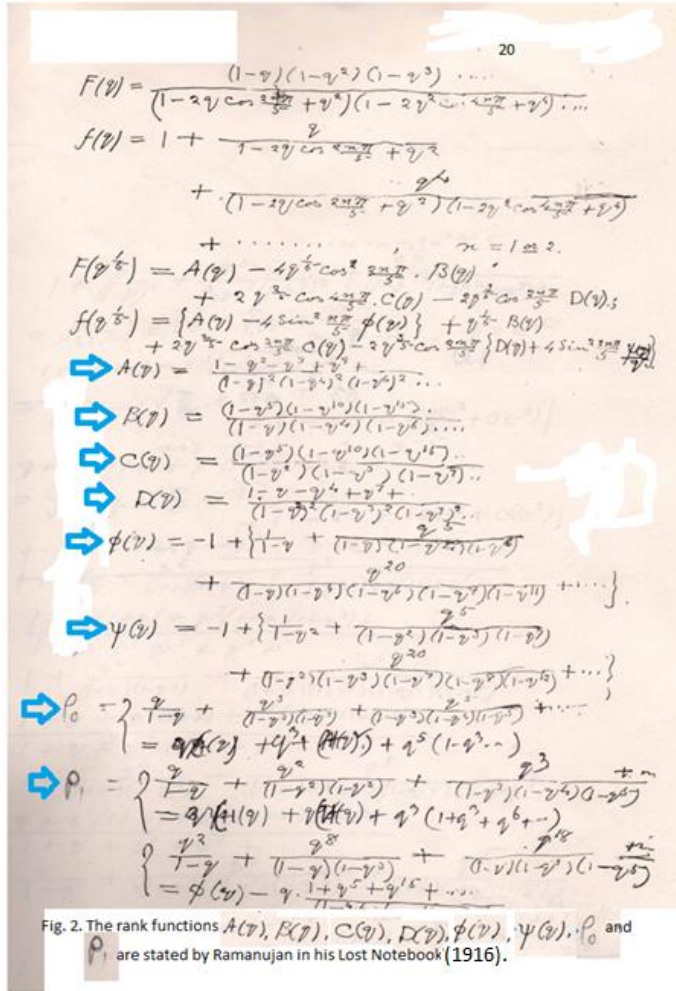 20
F(q) = (1-q)(1-q²)(1-q³) ..... / (1-2q cos 2nπ/5 + q²)(1-2q² cos 4nπ/5 + q⁴)....
f(q) = 1 + q / 1-2q cos 2nπ/5 + q²
+ q⁴ / (1-2q cos 2nπ/5 + q²)(1-2q² cos 4nπ/5 + q⁴)
+ ........ , n = 1 or 2.
F(q^1/5) = A(q) - 4q^1/5 cos² 2nπ/5 . B(q)
+ 2q^2/5 cos 4nπ/5 . C(q) - 2q^3/5 cos 2nπ/5 D(q).;
f(q^1/5) = {A(q) - 4 sin² nπ/5 φ(q)} + q^1/5 B(q)
+ 2q^2/5 cos 2nπ/5 C(q) - 2q^3/5 cos 2nπ/5 {D(q) + 4 sin² 2nπ/5 ψ(q)/q}
A(q) = 1-q²-q³+q⁹+ / (1-q)²(1-q⁴)²(1-q⁶)² ...
B(q) = (1-q⁵)(1-q¹⁰)(1-q¹⁵).. / (1-q)(1-q⁴)(1-q⁶)....
C(q) = (1-q⁵)(1-q¹⁰)(1-q¹⁵).. / (1-q²)(1-q³)(1-q⁷)..
D(q) = 1-q-q⁴+q⁷+ / (1-q²)²(1-q³)²(1-q⁷)²..
φ(q) = -1 + { 1/1-q + q⁵ / (1-q)(1-q⁴)(1-q⁶)
+ q²⁰ / (1-q)(1-q⁴)(1-q⁶)(1-q⁹)(1-q¹¹) + ....}.
ψ(q) = -1 + { 1/1-q² + q⁵ / (1-q²)(1-q³)(1-q⁷)
+ q²⁰ / (1-q²)(1-q³)(1-q⁷)(1-q⁸)(1-q¹²) + ...}
ρ₀ = { q/1-q + q³ / (1-q²)(1-q³) + q⁵ / (1-q³)(1-q⁴)(1-q⁵) + ....
ρ₁ = { q/1-q + q² / (1-q²)(1-q³) + q³ / (1-q³)(1-q⁴)(1-q⁵)
{ q²/1-q + q⁸ / (1-q)(1-q³) + q¹⁸ / (1-q)(1-q³)(1-q⁵)
= φ(q) - q . 1+q⁵+q¹⁵+ ....
Fig. 2. The rank functions A(q), B(q), C(q), D(q), φ(q), ψ(q), ρ₀ and
ρ₁ are stated by Ramanujan in his Lost Notebook (1916).